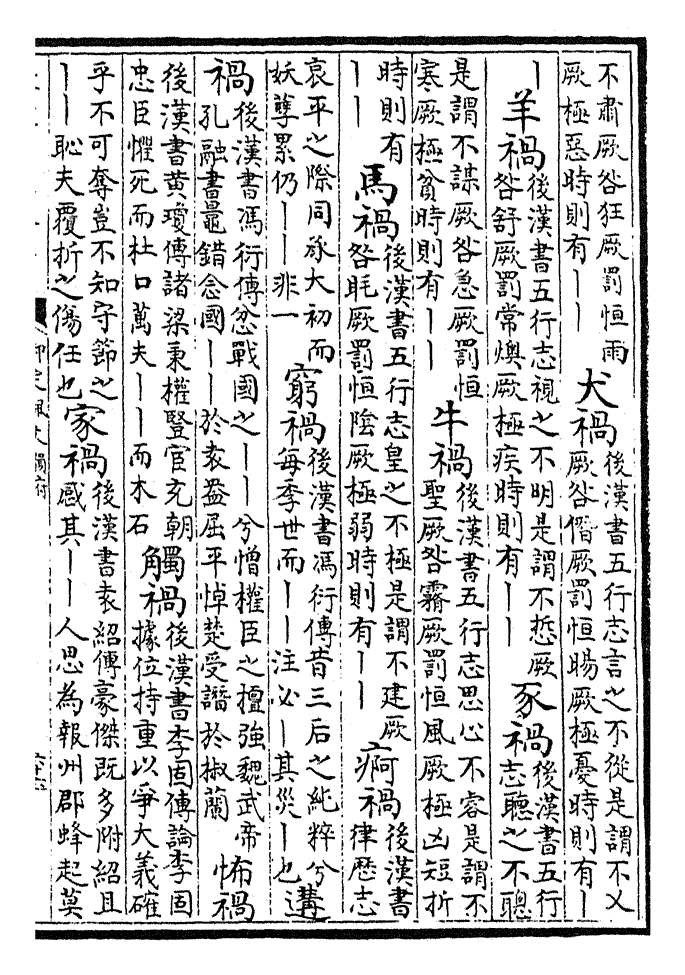 不肅厥咎狂厥罰恒雨
厥極惡時則有丨丨
犬禍
後漢書五行志言之不從是謂不乂
厥咎僭厥罰恒暘厥極憂時則有丨
丨
羊禍
後漢書五行志視之不明是謂不悊厥
咎舒厥罰常燠厥極疾時則有丨丨
豕禍
後漢書五行
志聽之不聰
是謂不謀厥咎急厥罰恒
寒厥極貧時則有丨丨
牛禍
後漢書五行志思心不容是謂不
聖厥咎霧厥罰恒風厥極凶短折
時則有
丨丨
馬禍
後漢書五行志皇之不極是謂不建厥
咎眊厥罰恒陰厥極弱時則有丨丨
痾禍
後漢書
律歴志
哀平之際同承大初而
妖孽累仍丨丨非一
窮禍
後漢書馮衍傳昔三后之純粹兮
每季世而丨丨注必丨其災丨也
遘
禍
後漢書馮衍傳忿戰國之丨丨兮憎權臣之擅強魏武帝
孔融書鼂錯念國丨丨於袁盎屈平悼楚受譖於椒蘭
怖禍
後漢書黄瓊傳諸梁秉權豎宦充朝
忠臣懼死而杜口萬夫丨丨而木石
觸禍
後漢書李固傳論李固
據位持重以爭大義確
乎不可奪豈不知守節之
丨丨恥夫覆折之傷任也
家禍
後漢書袁紹傳豪傑既多附紹且
感其丨丨人思為報州郡蜂起莫